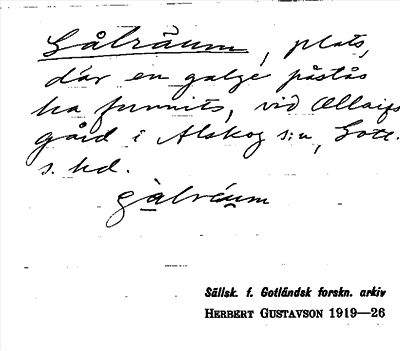 Gålräum, plats,
där en galge påstås
ha funnits, vid Ollaifs
gård i Alskog s:n, Gotl.
s. hd.
gàlréum
Sällsk. f. Gotländsk forskn. arkiv
HERBERT GUSTAVSON 1919—26